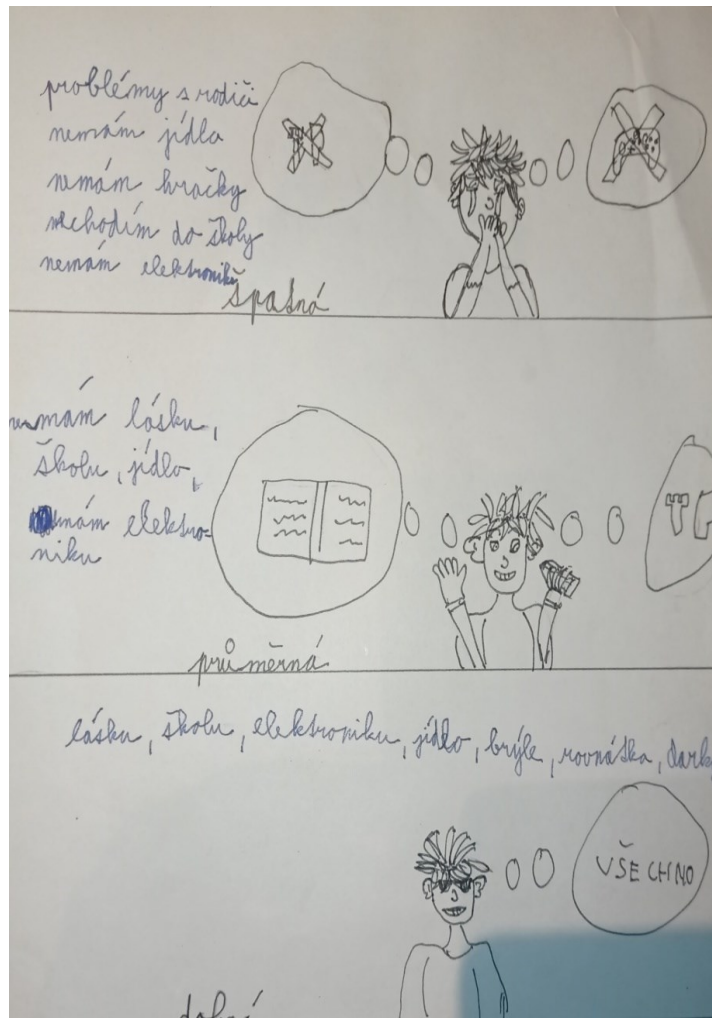 problémy s rodiči
nemám jídlo
nemám hračky
nechodím do školy
nemám elektroniku
špatná
nemám lásku,
školu, jídlo,
mám elektro-
niku
průměrná
lásku, školu, elektroniku, jídlo, brýle, rovnátka, dark
VŠECHNO
dobrá